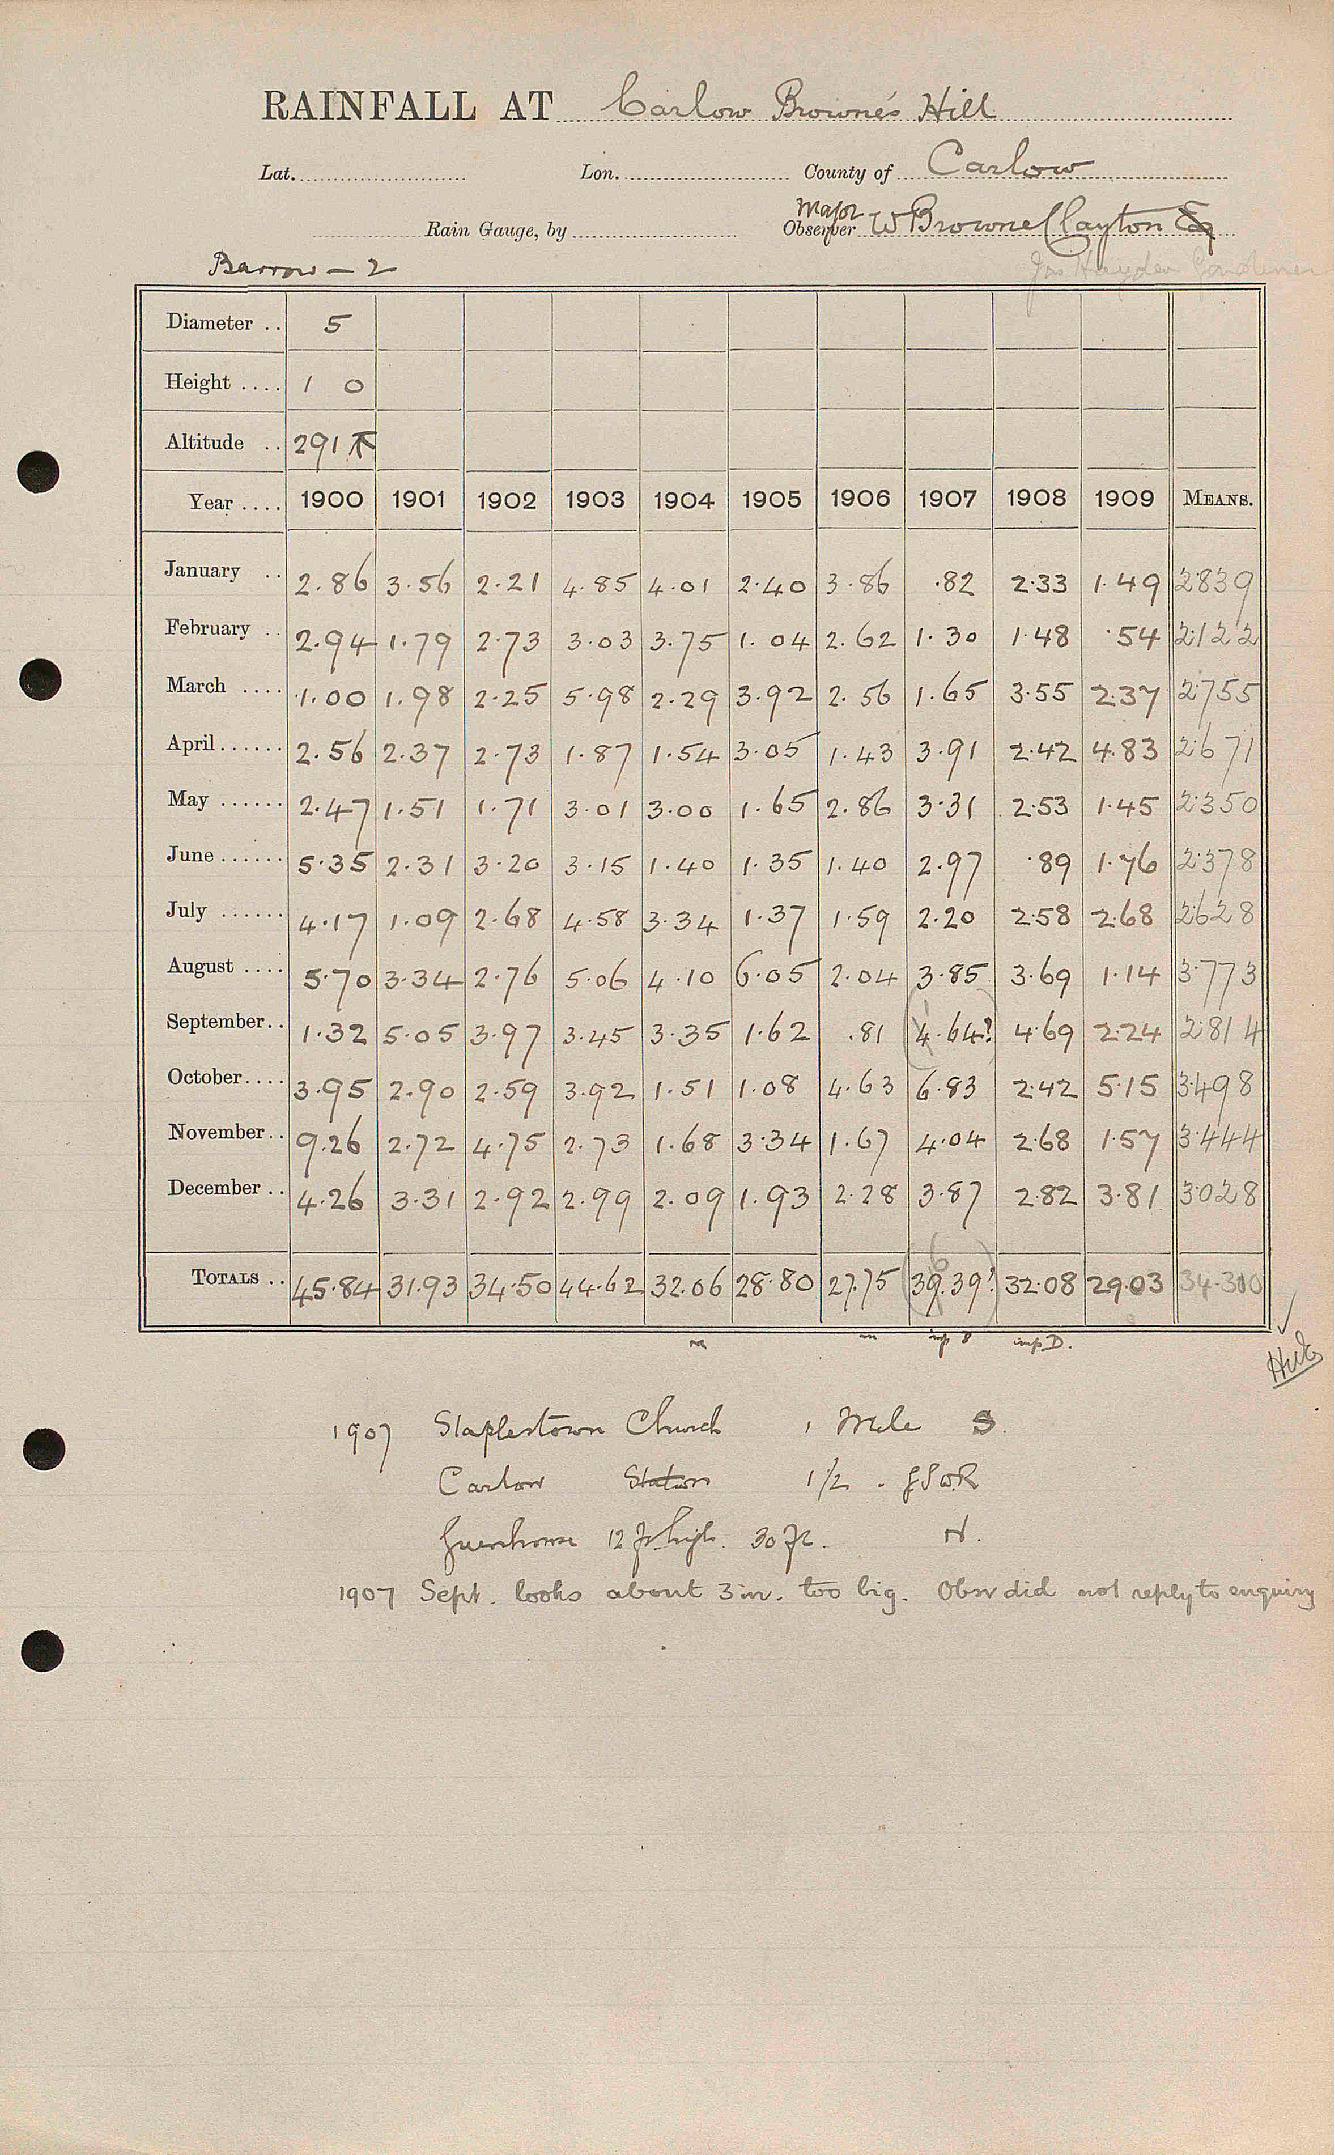 RAINFALL AT Carlow Browne's Hill
Lat. Lon. County of Carlow
Major
Rain Gauge, by Observer W Browne Clayton Esq
Barrow — 2 Jas Hayden Gardener
Diameter .. 5
Height .... 1 0
Altitude .. 291
Year .... 1900 1901 1902 1903 1904 1905 1906 1907 1908 1909 MEANS.
January .. 2.86 3.56 2.21 4.85 4.01 2.40 3.86 .82 2.33 1.49 2.839
February .. 2.94 1.79 2.73 3.03 3.75 1.04 2.62 1.30 1.48 .54 2.122
March .... 1.00 1.98 2.25 5.98 2.29 3.92 2.56 1.65 3.55 2.37 2.755
April ...... 2.56 2.37 2.73 1.87 1.54 3.05 1.43 3.91 2.42 4.83 2.671
May ...... 2.47 1.51 1.71 3.01 3.00 1.65 2.86 3.31 2.53 1.45 2.350
June ...... 5.35 2.31 3.20 3.15 1.40 1.35 1.40 2.97 .89 1.76 2.378
July ...... 4.17 1.09 2.68 4.58 3.34 1.37 1.59 2.20 2.58 2.68 2.628
August .... 5.70 3.34 2.76 5.06 4.10 6.05 2.04 3.85 3.69 1.14 3.773
September .. 1.32 5.05 3.97 3.45 3.35 1.62 .81 (4.64?) 4.69 2.24 2.814
October .... 3.95 2.90 2.59 3.92 1.51 1.08 4.63 6.83 2.42 5.15 3.498
November .. 9.26 2.72 4.75 2.73 1.68 3.34 1.67 4.04 2.68 1.57 3.444
December .. 4.26 3.31 2.92 2.99 2.09 1.93 2.28 3.87 2.82 3.81 3.028
6
TOTALS .. 45.84 31.93 34.50 44.62 32.06 28.80 27.75 (39.39?) 32.08 29.03 34.300
imp D.
1907 Staplestown Church 1 Mile S.
Carlow Station 1/2 . GS&WR
Greenhouse 12 ft high. 30 ft. N.
1907 Sept. looks about 3 in. too big. Obsr did not reply to enquiry